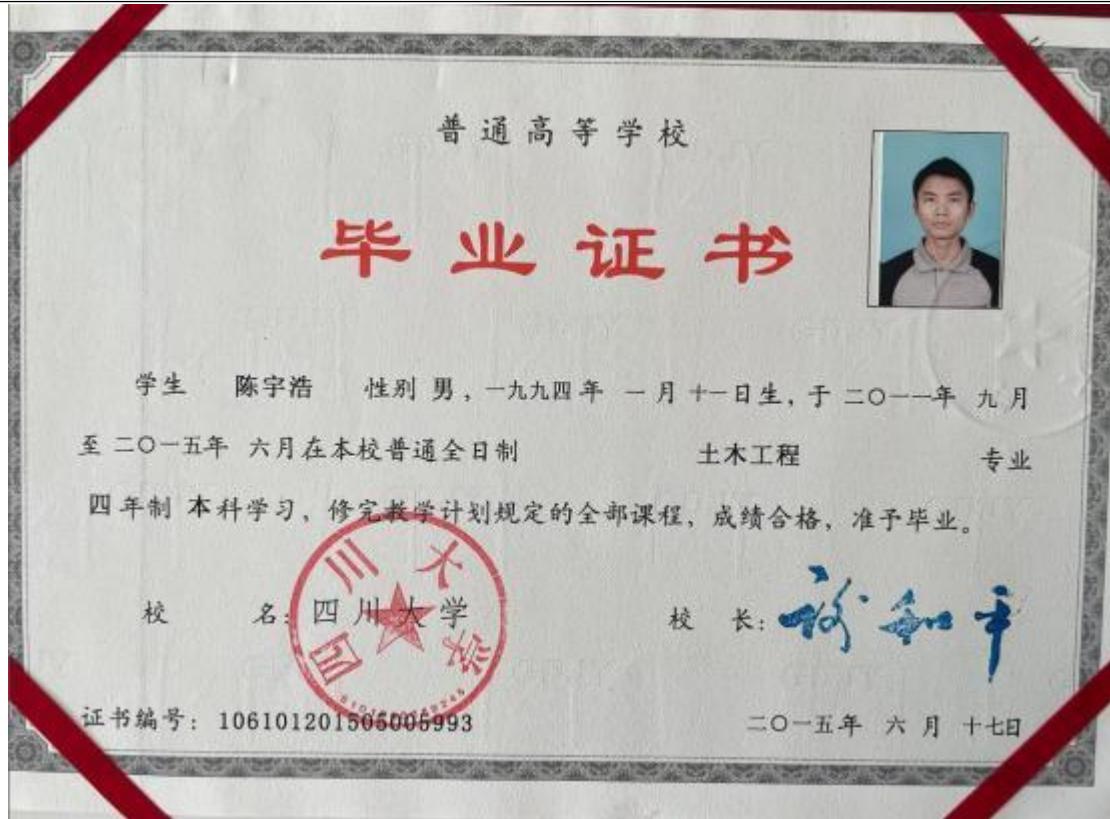 普通高等学校
毕业证书
学生 陈宇浩 性别 男，一九九四年 一月十一日生，于二〇一一年 九月
至二〇一五年 六月在本校普通全日制 土木工程 专业
四年制 本科学习，修完教学计划规定的全部课程，成绩合格，准予毕业。
校 名：四川大学 校 长：谢和平
四川大学
证书编号：106101201505005993 二〇一五年 六月 十七日